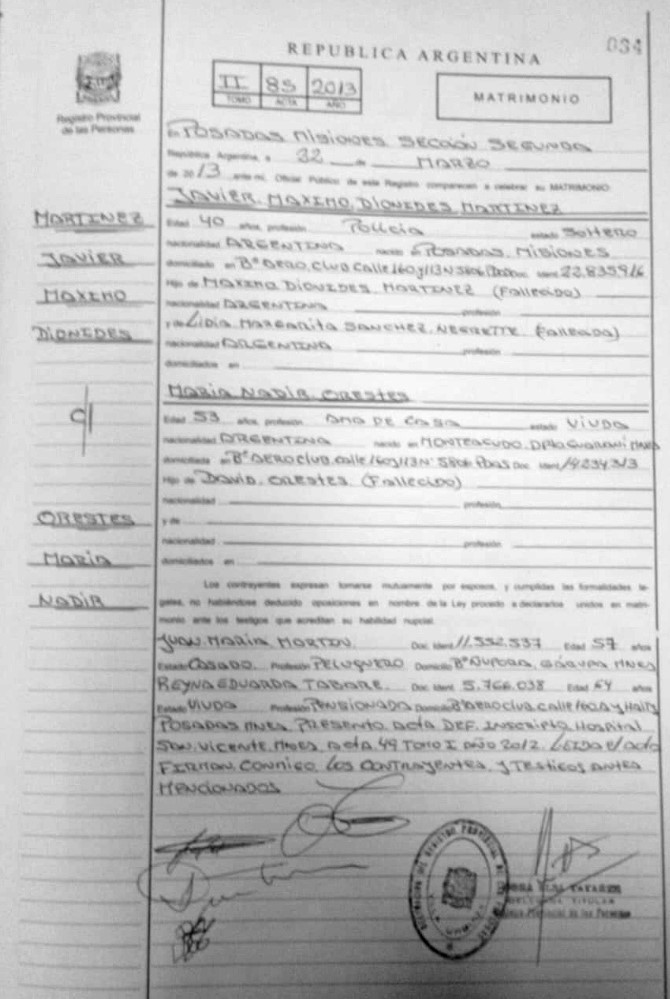 034
REPUBLICA ARGENTINA
II 85 2013
TOMO ACTA AÑO
MATRIMONIO
Registro Provincial
de las Personas
En POSADAS MISIONES SECCIÓN SEGUNDA
República Argentina, a 22 de MARZO
de 2013 ante mí, Oficial Público de este Registro comparecen a celebrar su MATRIMONIO
JAVIER MAXIMO DIONEDES MARTINEZ
MARTINEZ
JAVIER
MAXIMO
DIONEDES
Edad 40 años, profesión Policia estado Soltero
nacionalidad ARGENTINA nacido en POSADAS MISIONES
domiciliado en Bº AERO Club Calle 160 y 113 N 5806 Doc. Ident.
Hijo de MAXIMO DIONEDES MARTINEZ (Fallecido)
nacionalidad ARGENTINA profesión
y de Lidia Margarita SANCHEZ NEGRETTE (Fallecida)
nacionalidad ARGENTINA profesión
domiciliados en
MARIA NADIR ORESTES
c/
Edad 53 años, profesión AMA DE CASA estado VIUDA
nacionalidad ARGENTINA nacido en MONTEAGUDO DPTO GUARANI MNES
domiciliado en Bº AERO Club calle 160 y 113 Nº 5806 PDAS Doc. Ident.
Hijo de DAVID ORESTES (Fallecido)
nacionalidad profesión
y de
nacionalidad profesión
domiciliados en
ORESTES
MARIA
NADIR
Los contrayentes expresan tomarse mutuamente por esposos, y cumplidas las formalidades le-
gales, no habiéndose deducido oposiciones en nombre de la Ley procedo a declararlos unidos en matri-
monio ante los testigos que acreditan su habilidad nupcial.
JUAN MARIA MARTIN Doc. Ident. 11.552.537 Edad 57 años
Estado CASADO Profesión PELUQUERO Domicilio Bº MNES
REYNA EDUARDA TABARE Doc. Ident. 5.766.038 Edad 64 años
Estado VIUDA Profesión PENSIONADA Domicilio Bº AERO Club calle 160A y
POSADAS MNES. PRESENTO ACTA DEF. INSCRIPTA Hospital
SAN VICENTE MNES. Acta 49 TOMO I AÑO 2012. LEIDA el acta
FIRMAN CONMIGO LOS CONTRAYENTES Y TESTIGOS ANTES
MENCIONADOS
DELEGADA TITULAR
Registro Provincial de las Personas